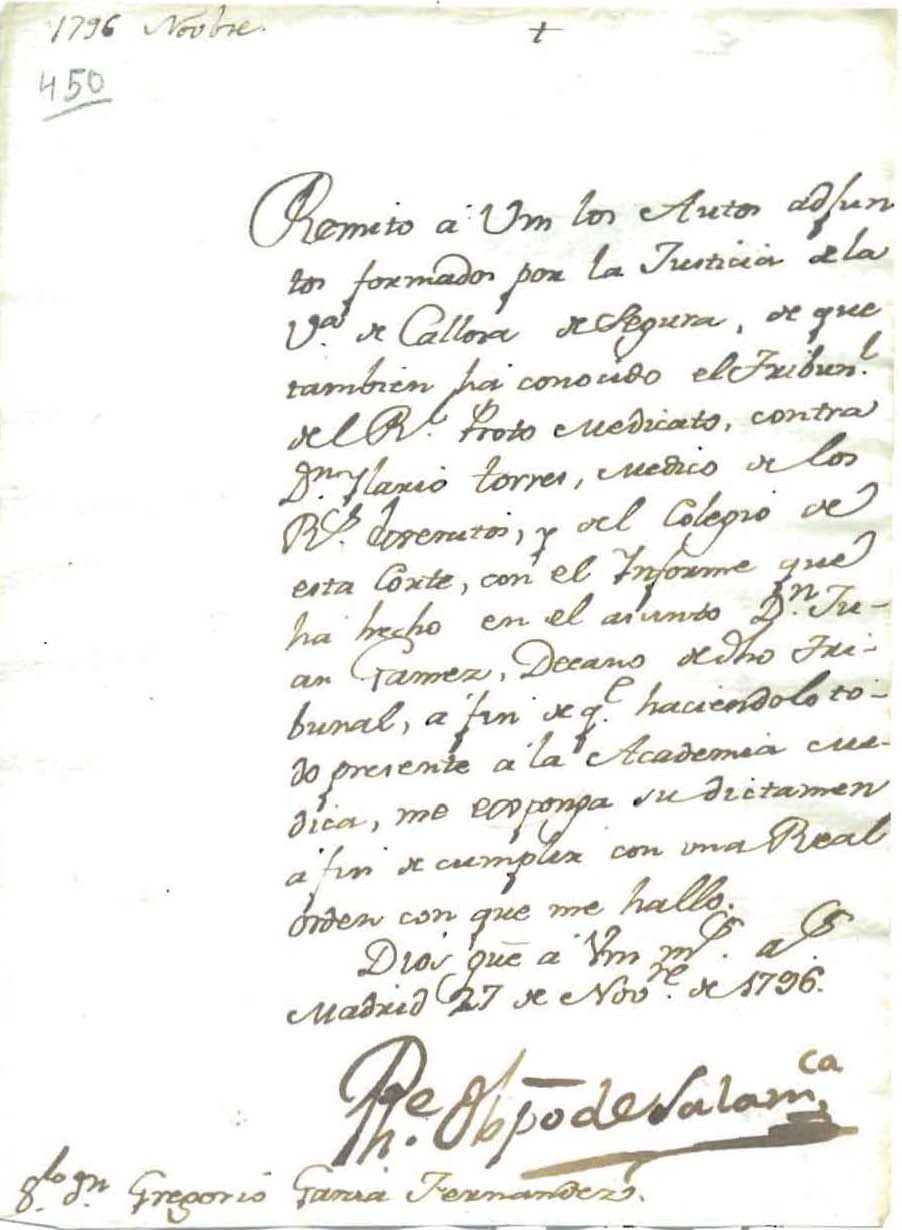 1796 Novbre.
+
450
Remito á Vm los Autos adjun
tos formados por la Justicia de la
V.ª de Callosa de Segura, de que
tambien há conocido el Tribun.l
del R.l Proto Medicato, contra
D.n Ylario Torres, Medico de los
R.s Exercitos, y del Colegio de
esta Corte, con el Informe que
há hecho en el asunto D.n Ju-
an Gamez, Decano de dho Tri-
bunal, á fin de q.e haciendolo to-
do presente á la Academia Me-
dica, me exponga su dictamen
á fin de cumplir con una Real
orden con que me hallo.
Dios gue á Vm m.s a.s
Madrid 27 de Nov.re de 1796.
Ph.e Obpo de Salam.ca
S.or D.n Gregorio Garcia Fernandez.